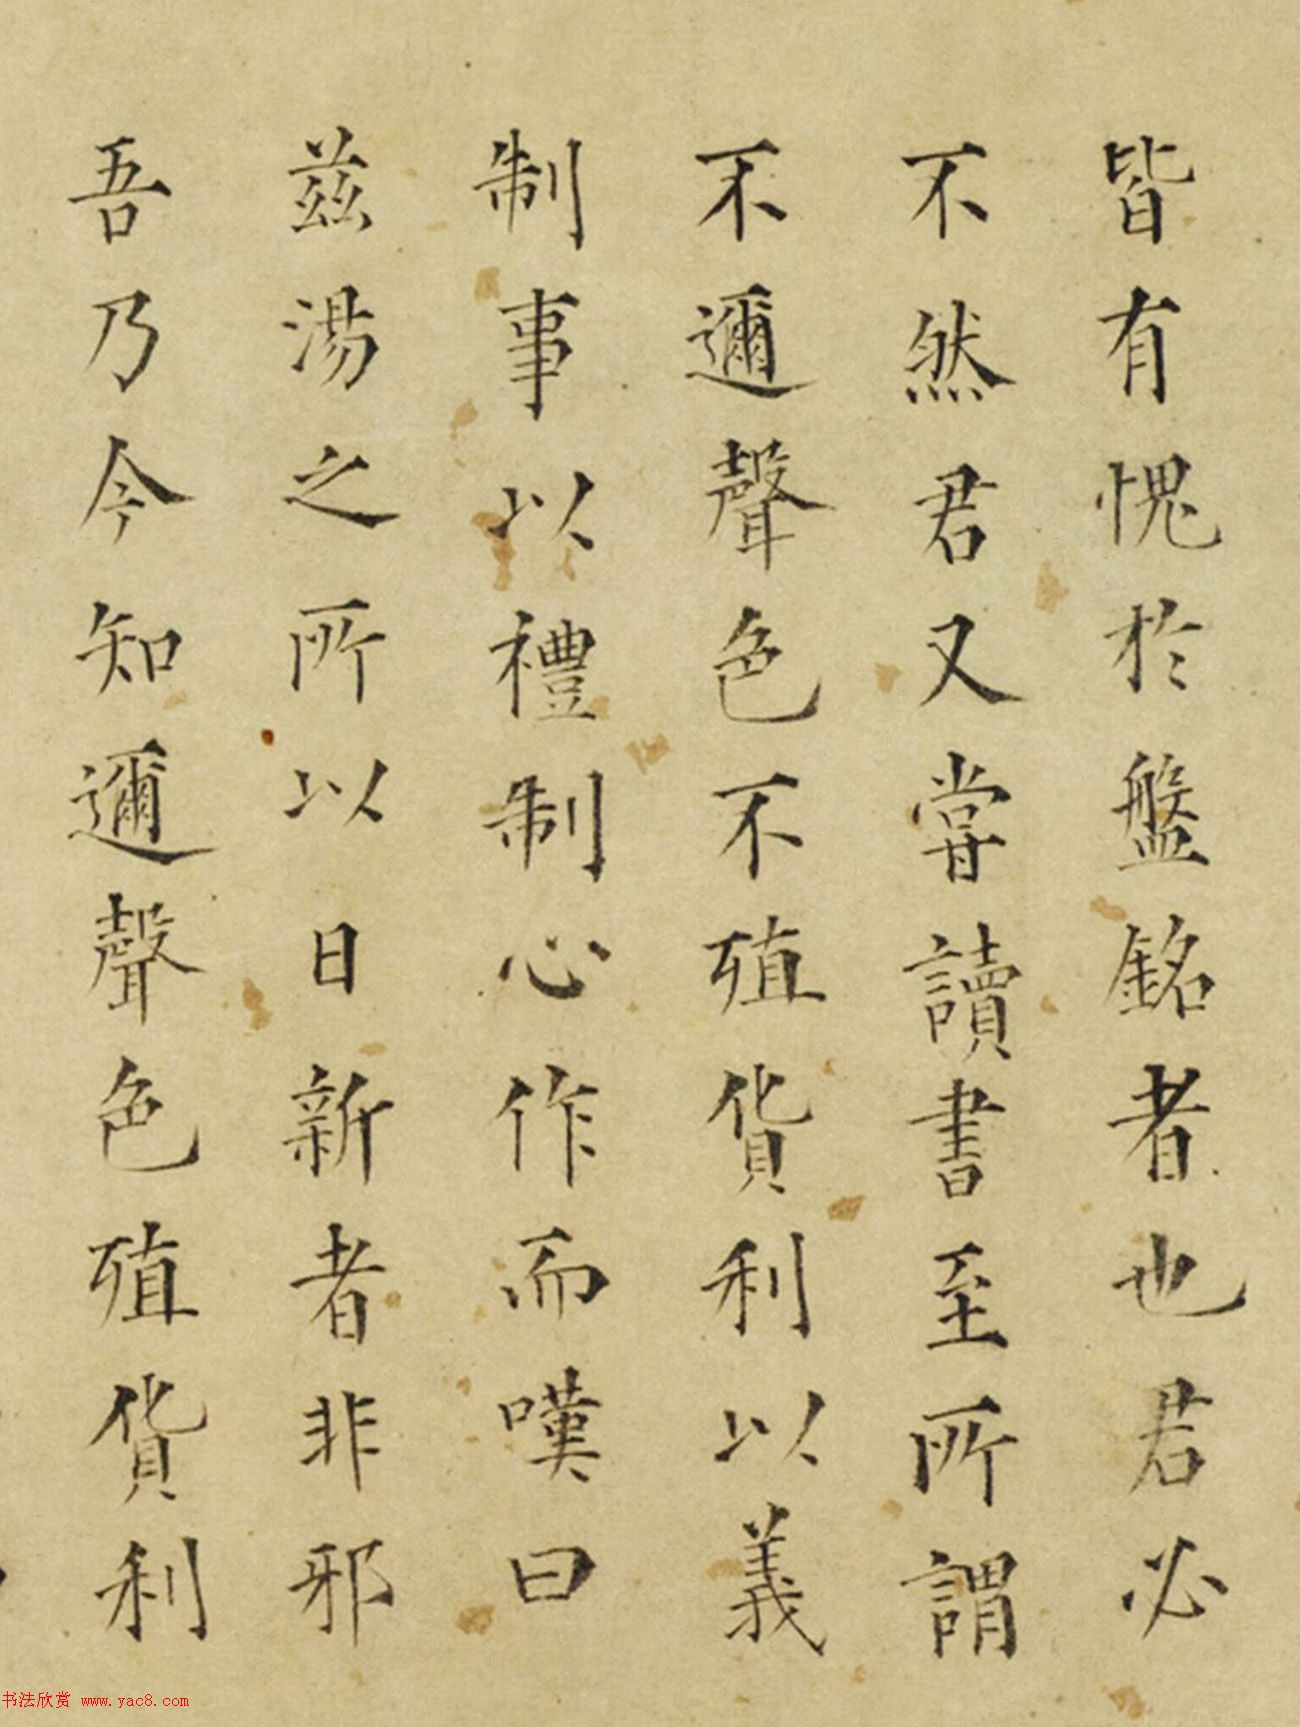 皆有愧於盤銘者也君必
不然君又嘗讀書至所謂
不邇聲色不殖貨利以義
制事以禮制心作而嘆曰
茲湯之所以日新者非邪
吾乃今知邇聲色殖貨利
书法欣赏 www.yac8.com